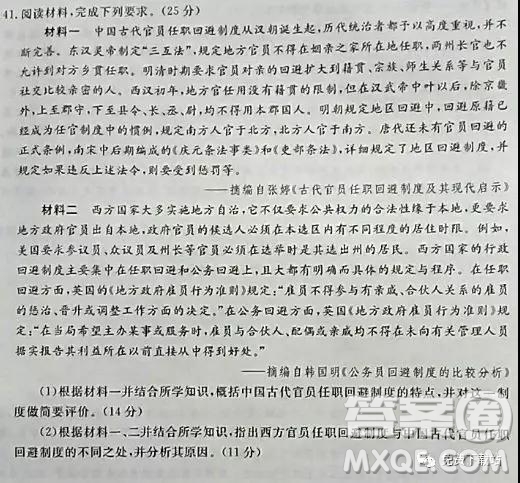 41. 阅读材料,完成下列要求。(25 分)
材料一 中国古代官员任职回避制度从汉朝诞生起,历代统治者都予以高度重视,并不
断完善。东汉灵帝制定“三互法”,规定地方官员不得在姻亲之家所在地任职,两州长官也不
允许到对方乡贯任职。明清时期要求官员对亲的回避扩大到籍贯、宗族、师生关系等与官员
社交比较亲密的人。西汉初年,地方官任用没有籍贯的限制,但在汉武帝中叶以后,除京畿
外,上至郡守,下至县令、长、丞、尉,均不得用本郡国人。明朝规定地区回避中,回避原籍已
经成为任官制度中的惯例,规定南方人官于北方,北方人官于南方。唐代还未有官员回避的
正式条例,南宋中后期编成的《庆元条法事类》和《吏部条法》,详细规定了地区回避制度,并
规定如果违反上述法令,则要受到惩罚等。
——摘编自张婷《古代官员任职回避制度及其现代启示》
材料二 西方国家大多实施地方自治,它不仅要求公共权力的合法性缘于本地,更要求
地方政府官员出自本地,政府官员的候选人必须在本选区内有不同程度的居住时限。例如,
美国要求参议员、众议员及州长等官员必须在选举时是其选出州的居民。西方国家的行政
回避制度主要集中在任职回避和公务回避上,且大都有明确而具体的规定与程序。在任职
回避方面,英国的《地方政府雇员行为准则》规定:“雇员不得参与有亲戚、合伙人关系的雇员
的惩治、晋升或调整工作方面的决定。”在公务回避方面,英国《地方政府雇员行为准则》规
定:“在当局希望主办某事或服务时,雇员与合伙人、配偶或亲戚均不得在未向有关管理人员
据实报告其利益所在以前直接从中得到好处。”
——摘编自韩国明《公务员回避制度的比较分析》
(1)根据材料一并结合所学知识,概括中国古代官员任职回避制度的特点,并对这一制
度做简要评价。(14 分)
(2)根据材料一、二并结合所学知识,指出西方官员任职回避制度与中国古代官员任职
回避制度的不同之处,并分析其原因。(11 分)
答案圈
MXQE.COM